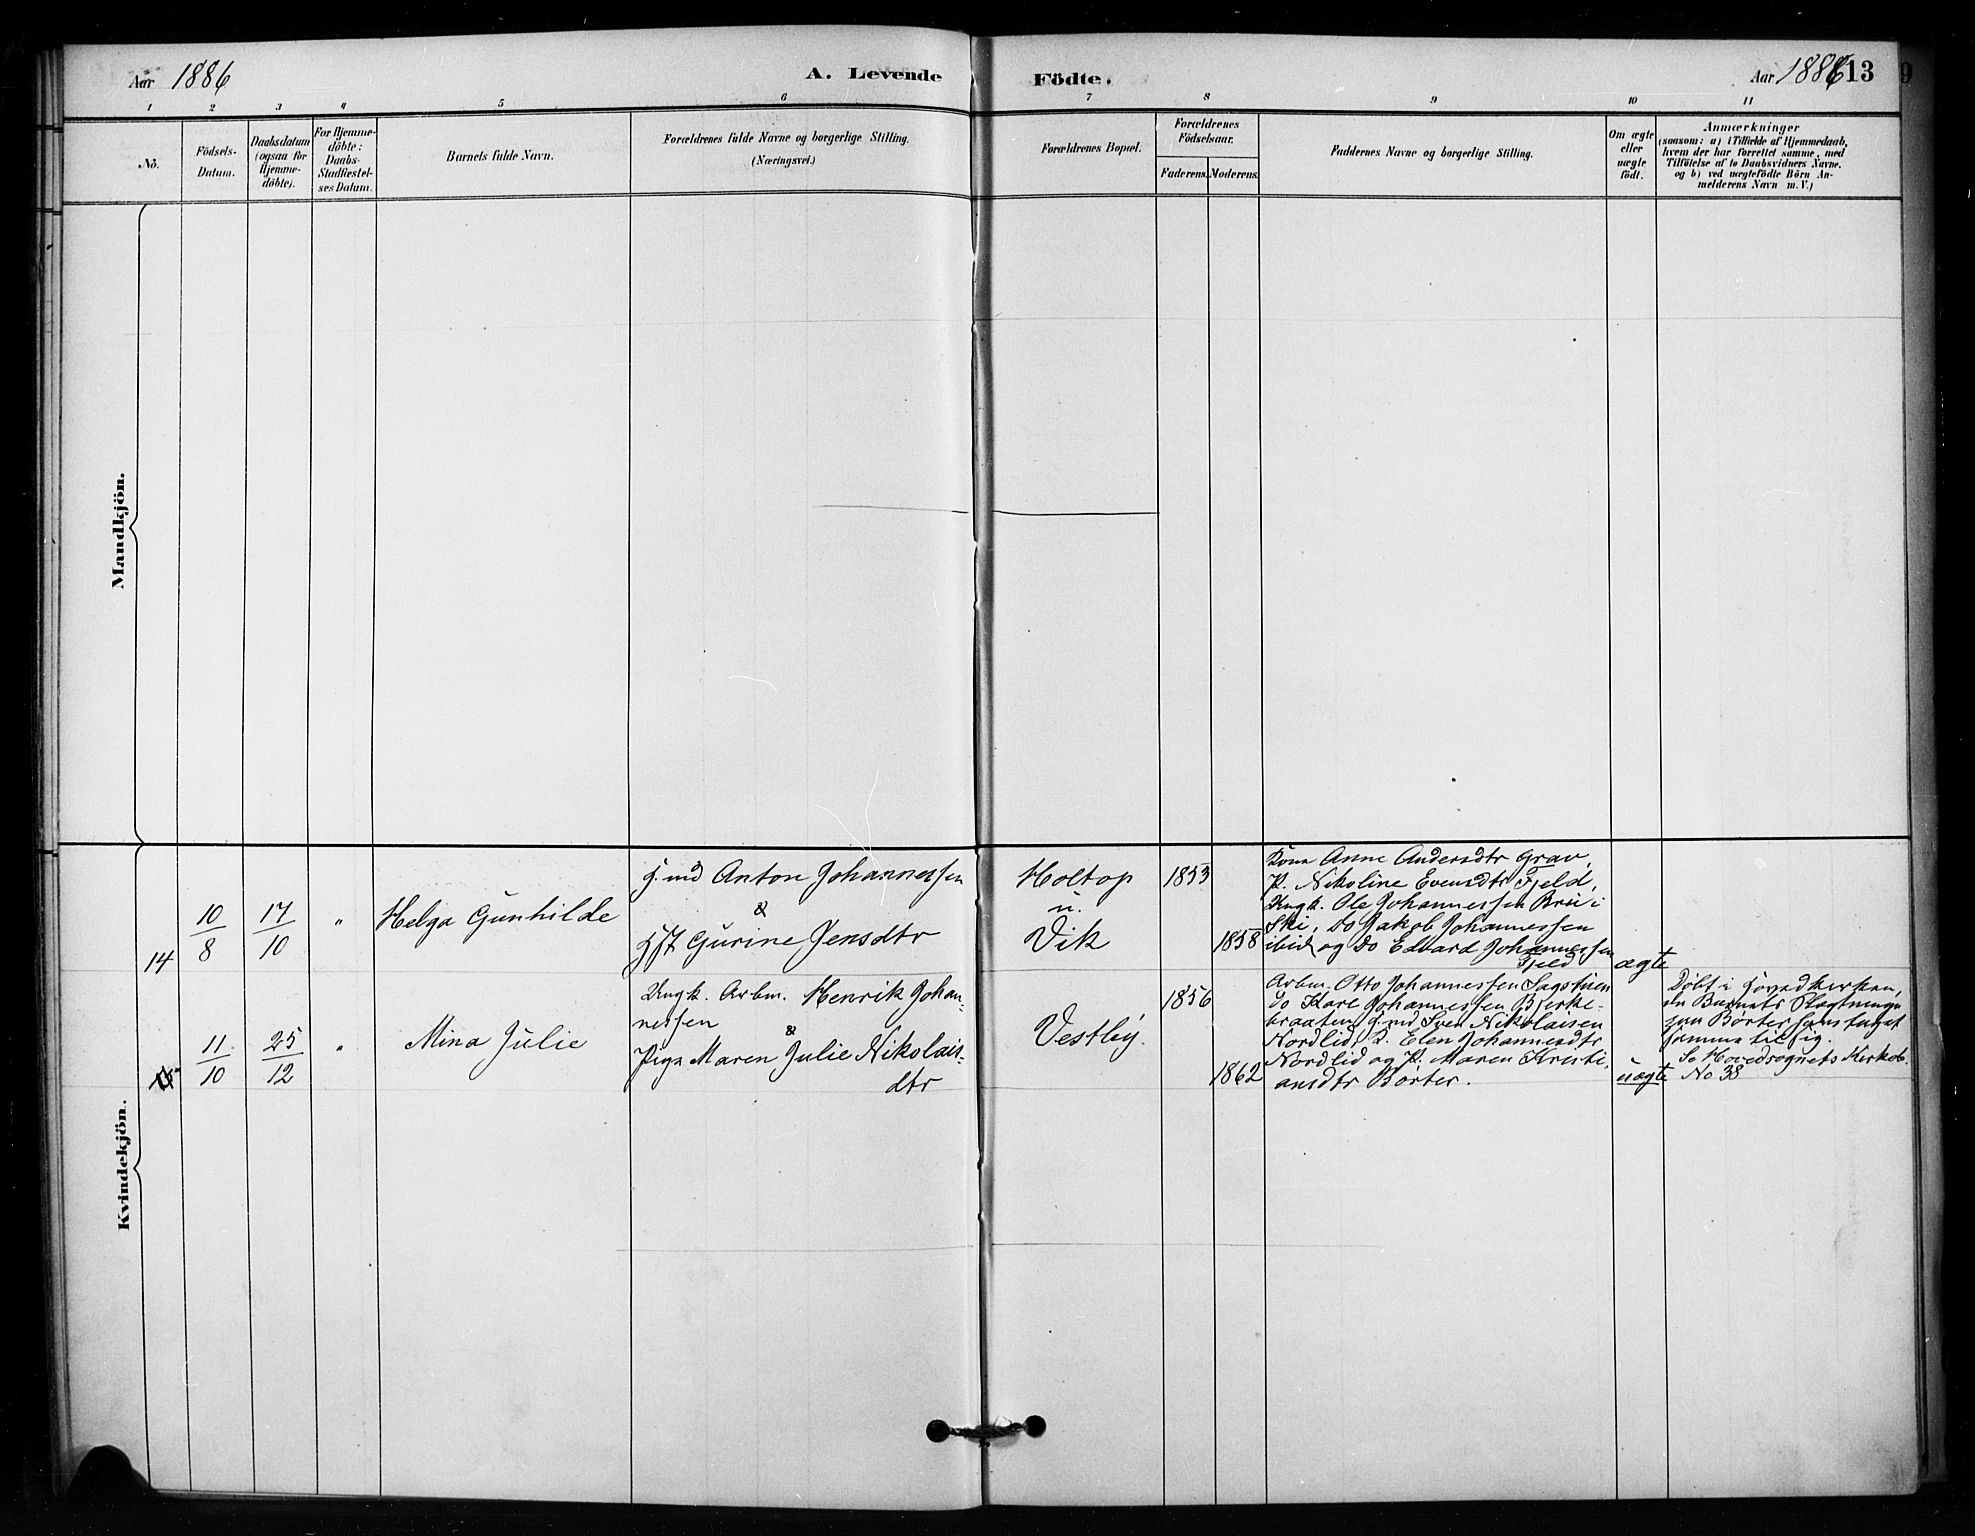 Aar 1886
A. Levende
Födte.
Aar 1886
13
9
1 2 3 4 5 6 7 8 9 10 11
No.
Födsels-
Datum.
Daabsdatum
(ogsaa for
Hjemme-
döbte).
For Hjemme-
döbte:
Daabs-
Stadfæstel-
ses Datum.
Barnets fulde Navn.
Forældrenes fulde Navne og borgerlige Stilling.
(Næringsvei.)
Forældrenes Bopæl.
Forældrenes
Födselsaar.
Faderens.
Moderens.
Faddernes Navne og borgerlige Stilling.
Om ægte
eller
uægte
födt.
Anmærkninger
(saasom: a) i Tilfælde af Hjemmedaab,
hvem der har forrettet samme, med
Tilföielse af to Daabsvidners Navne,
og b) ved uægtefödte Börn An-
melderens Navn m. V.)
Mandkjön.
Kvindekjön.
14
10/8
17/10
"
Helga Gunhilde
G.md Anton Johannessen
&
Hst Gurine Jensdtr
Holtop
u.
Vik
1853
1858
Kone Anne Andersdtr Grav,
P. Nikoline Evensdtr Fjeld,
Ungk. Ole Johannessen Brii i
Ski, Do Jakob Johannessen
ibid og Do Edvard Johannessen
Fjeld
ægte
15
11/10
25/12
"
Mina Julie
Ungk. Arbm. Henrik Johan-
nessen
&
Pige Maren Julie Nikolais-
dtr
Vestby.
1856
1862
Arbm. Otto Johannessen Sagstuen
Do Karl Johannessen Bjerke-
braaten, G.md Sven Nikolaisen
Nordlid, P. Elen Johannesdtr
Nordlid og P. Maren Kristi-
ansdtr Börter.
uægte
Döbt i Hovedkirken,
da Barnets Slægtninge
paa Börter har taget
samme til sig.
Se Hovedsognets Kirkeb.
No 38